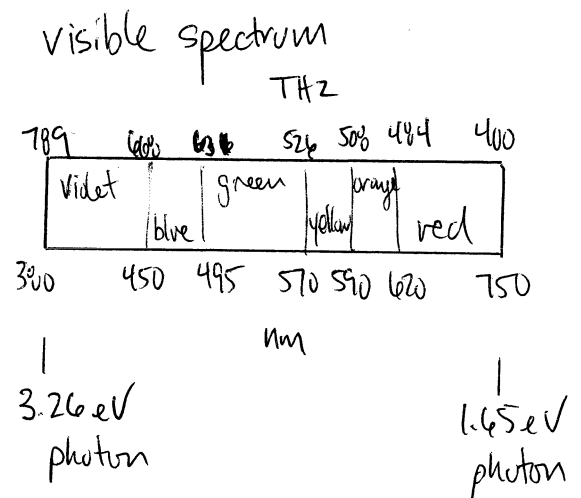 visible spectrum
THz
789 526 508 484 400
violet blue green yellow orange red
450 495 570 590 620 750
nm
3.26 eV 1.65 eV
photon photon